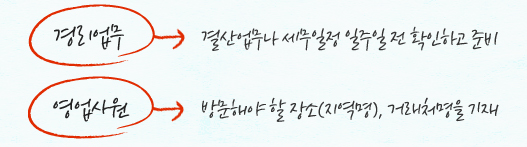 경리업무 → 결산업무나 세무일정 일주일 전 확인하고 준비
영업사원 → 방문해야 할 장소(지역명), 거래처명을 기재